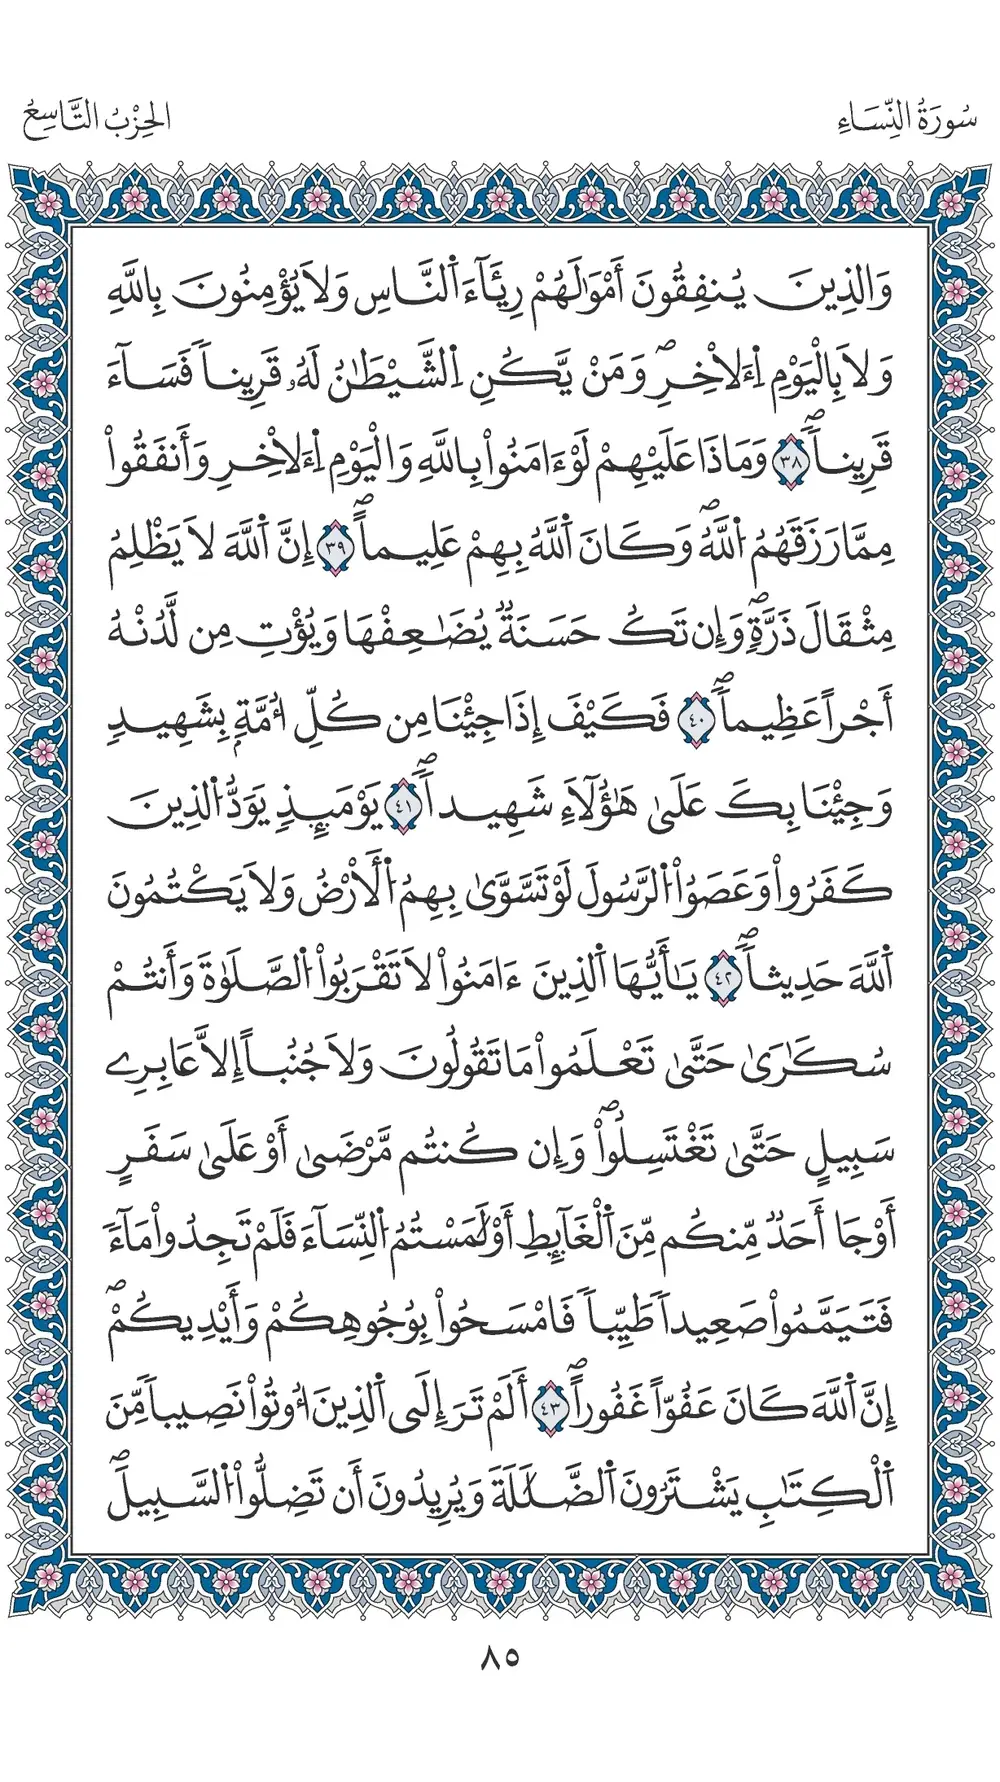 سُورَةُ النِّسَاءِ
الحِزْبُ التَّاسِعُ
وَالذِينَ يُنفِقُونَ أَمْوَٰلَهُمْ رِئَآءَ اَ۬لنَّاسِ وَلَا يُؤْمِنُونَ بِاللَّهِ
وَلَا بِالْيَوْمِ اِ۬ءَلَاخِرِۖ وَمَنْ يَّكُنِ اِ۬لشَّيْطَٰنُ لَهُۥ قَرِيناٗ فَسَآءَ
قَرِيناٗۖ ٣٨ وَمَاذَا عَلَيْهِمْ لَوَ ءَامَنُواْ بِاللَّهِ وَالْيَوْمِ اِ۬ءَلَاخِرِ وَأَنفَقُواْ
مِمَّا رَزَقَهُمُ اُ۬للَّهُۖ وَكَانَ اَ۬للَّهُ بِهِمْ عَلِيماًۖ ٣٩ إِنَّ اَ۬للَّهَ لَا يَظْلِمُ
مِثْقَالَ ذَرَّةٖۖ وَإِن تَكُ حَسَنَةٞ يُضَٰعِفْهَا وَيُؤْتِ مِن لَّدُنْهُ
أَجْراً عَظِيماٗۖ ٤٠ فَكَيْفَ إِذَا جِئْنَا مِن كُلِّ أُمَّةِۭ بِشَهِيدٖ
وَجِئْنَا بِكَ عَلَىٰ هَٰٓؤُلَآءِ شَهِيداٗۖ ٤١ يَوْمَئِذٖ يَوَدُّ اُ۬لذِينَ
كَفَرُواْ وَعَصَوُاْ اُ۬لرَّسُولَ لَوْ تَسَّوَّىٰ بِهِمُ اُ۬لْأَرْضُ وَلَا يَكْتُمُونَ
اَ۬للَّهَ حَدِيثاٗۖ ٤٢ يَٰٓأَيُّهَا اَ۬لذِينَ ءَامَنُواْ لَا تَقْرَبُواْ اُ۬لصَّلَوٰةَ وَأَنتُمْ
سُكَٰرَىٰ حَتَّىٰ تَعْلَمُواْ مَا تَقُولُونَ وَلَا جُنُباً إِلَّا عَابِرِے
سَبِيلٍ حَتَّىٰ تَغْتَسِلُواْۖ وَإِن كُنتُم مَّرْضَىٰ أَوْ عَلَىٰ سَفَرٍ
أَوْ جَا أَحَدٞ مِّنكُم مِّنَ اَ۬لْغَآئِطِ أَوْ لَٰمَسْتُمُ اُ۬لنِّسَآءَ فَلَمْ تَجِدُواْ مَآءٗ
فَتَيَمَّمُواْ صَعِيداٗ طَيِّباٗ فَامْسَحُواْ بِوُجُوهِكُمْ وَأَيْدِيكُمْۖ
إِنَّ اَ۬للَّهَ كَانَ عَفُوّاً غَفُوراًۖ ٤٣ أَلَمْ تَرَ إِلَى اَ۬لذِينَ أُوتُواْ نَصِيباٗ مِّنَ
اَ۬لْكِتَٰبِ يَشْتَرُونَ اَ۬لضَّلَٰلَةَ وَيُرِيدُونَ أَن تَضِلُّواْ اُ۬لسَّبِيلَۖ
٨٥